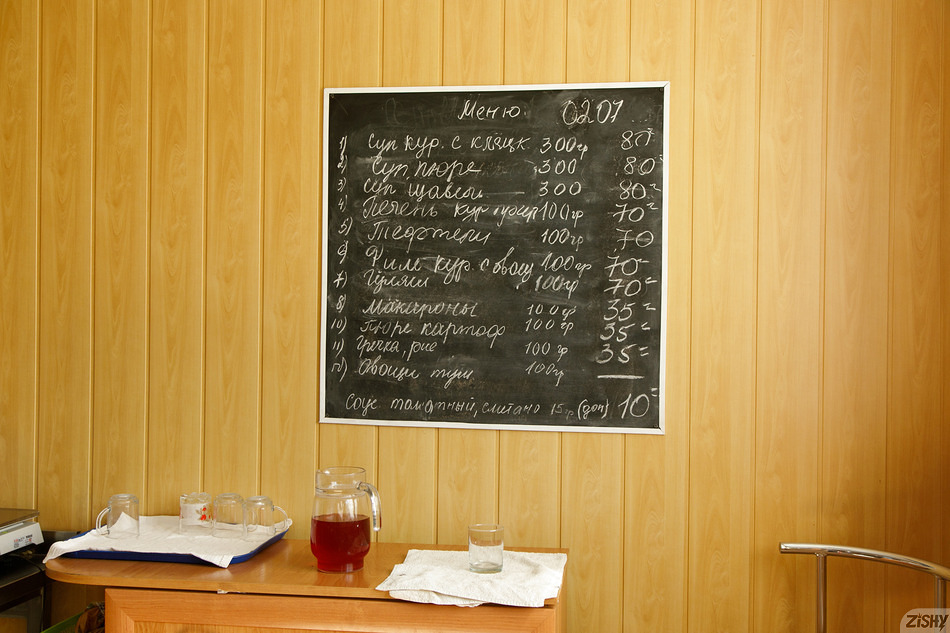 Меню 02 07
1) Суп кур. с клецк 300гр 80=
2) Суп, пюре 300 80=
3) Суп щавел. 300 80=
4) Печень кур 100гр 70=
5) Тефтели 100гр 70
6) Филе кур. с овощ 100гр 70=
7) Гуляш 100гр 70=
8) Макароны 100гр 35=
10) Пюре картоф 100гр 35=
11) Гречка, рис 100гр 35=
Овощи туш 100гр —
Соус томатный, сметано 15гр (доп) 10=
ZISHY